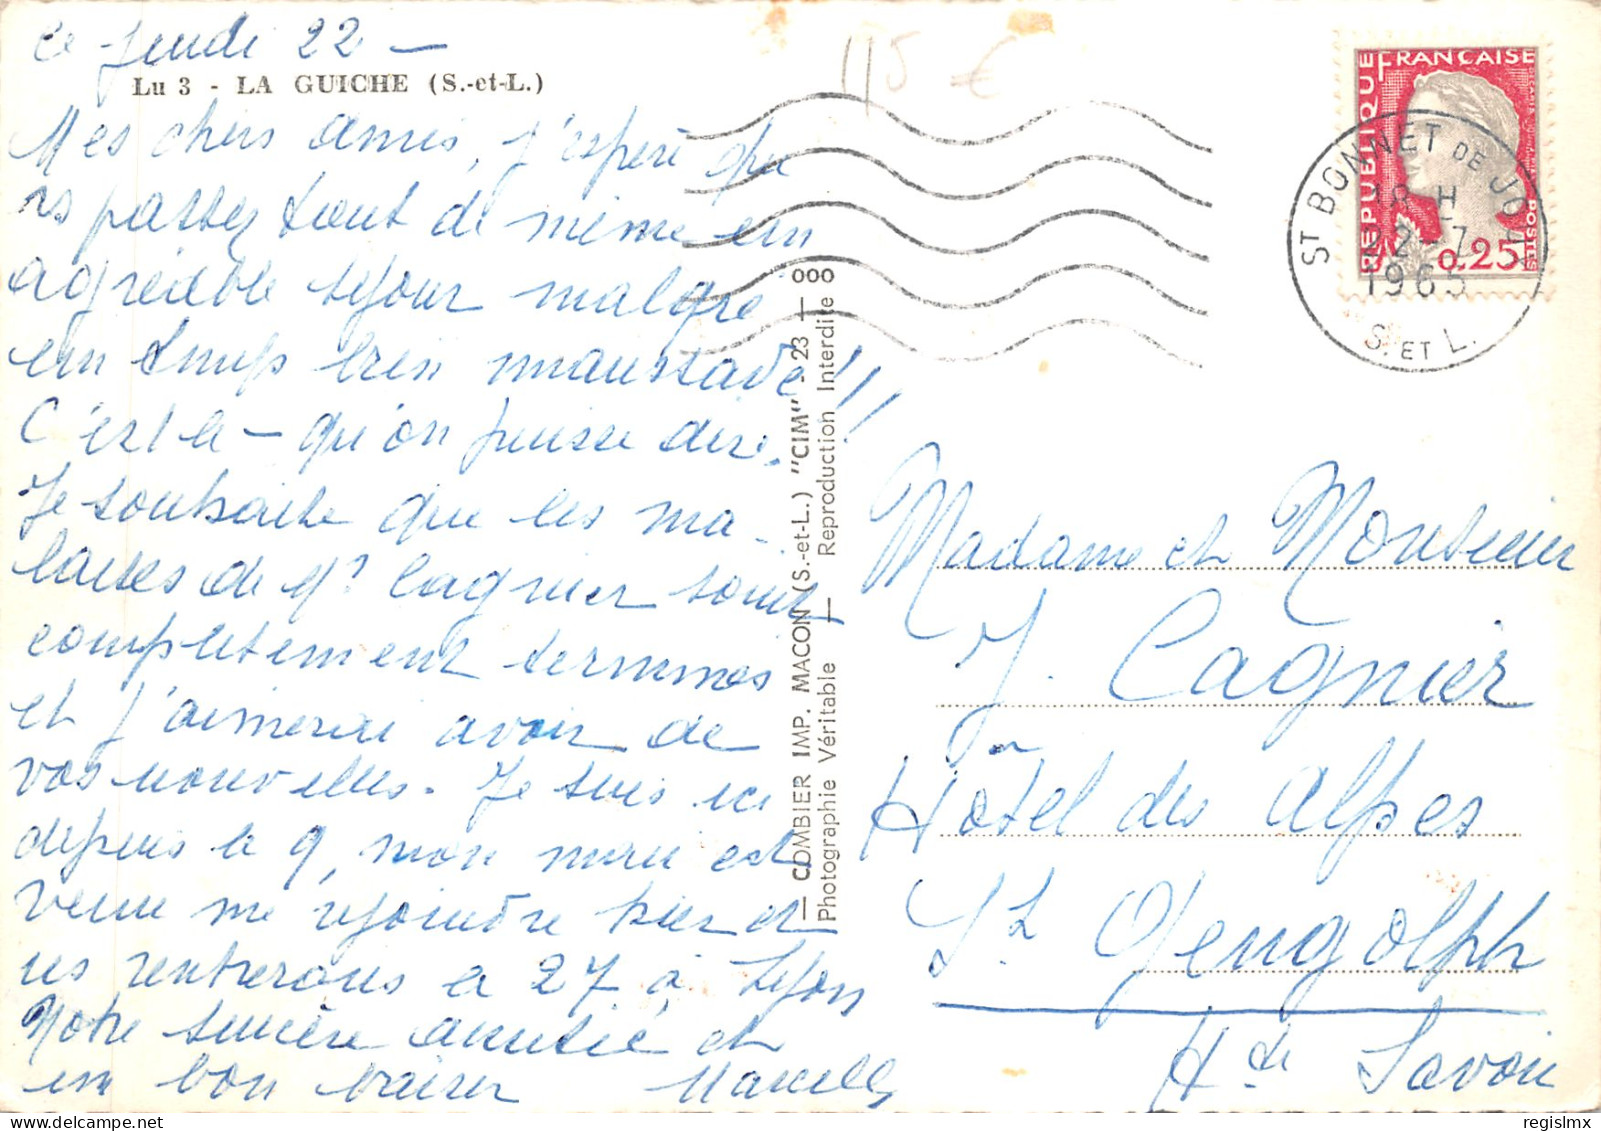 ce jeudi 22 —
Lu 3 - LA GUICHE (S.-et-L.)
Mes chers amis, j'espère que
vs passez tout de même un
agréable séjour malgré
un temps très maussade !!!
C'est le — qu'on puisse dire.
Je souhaite que les ma-
laises de Mr Cagnier sont
complètement terminés
et j'aimerai avoir de
vos nouvelles. Je suis ici
depuis le 9, mon mari est
venu me rejoindre hier et
ns rentrerons le 27 à Lyon
Notre sincère amitié et
un bon baiser Marcelle
COMBIER IMP. MACON (S.-et-L.) "CIM" - 23 — ooo
Photographie Véritable — Reproduction Interdite
115 €
RÉPUBLIQUE FRANÇAISE
0,25
POSTES
ST BONNET DE JOUX
18 H
22-7
1965
S. ET L.
Madame et Monsieur
J. Cagnier
Hôtel des Alpes
St Gengolph
Hte Savoie
regislmx